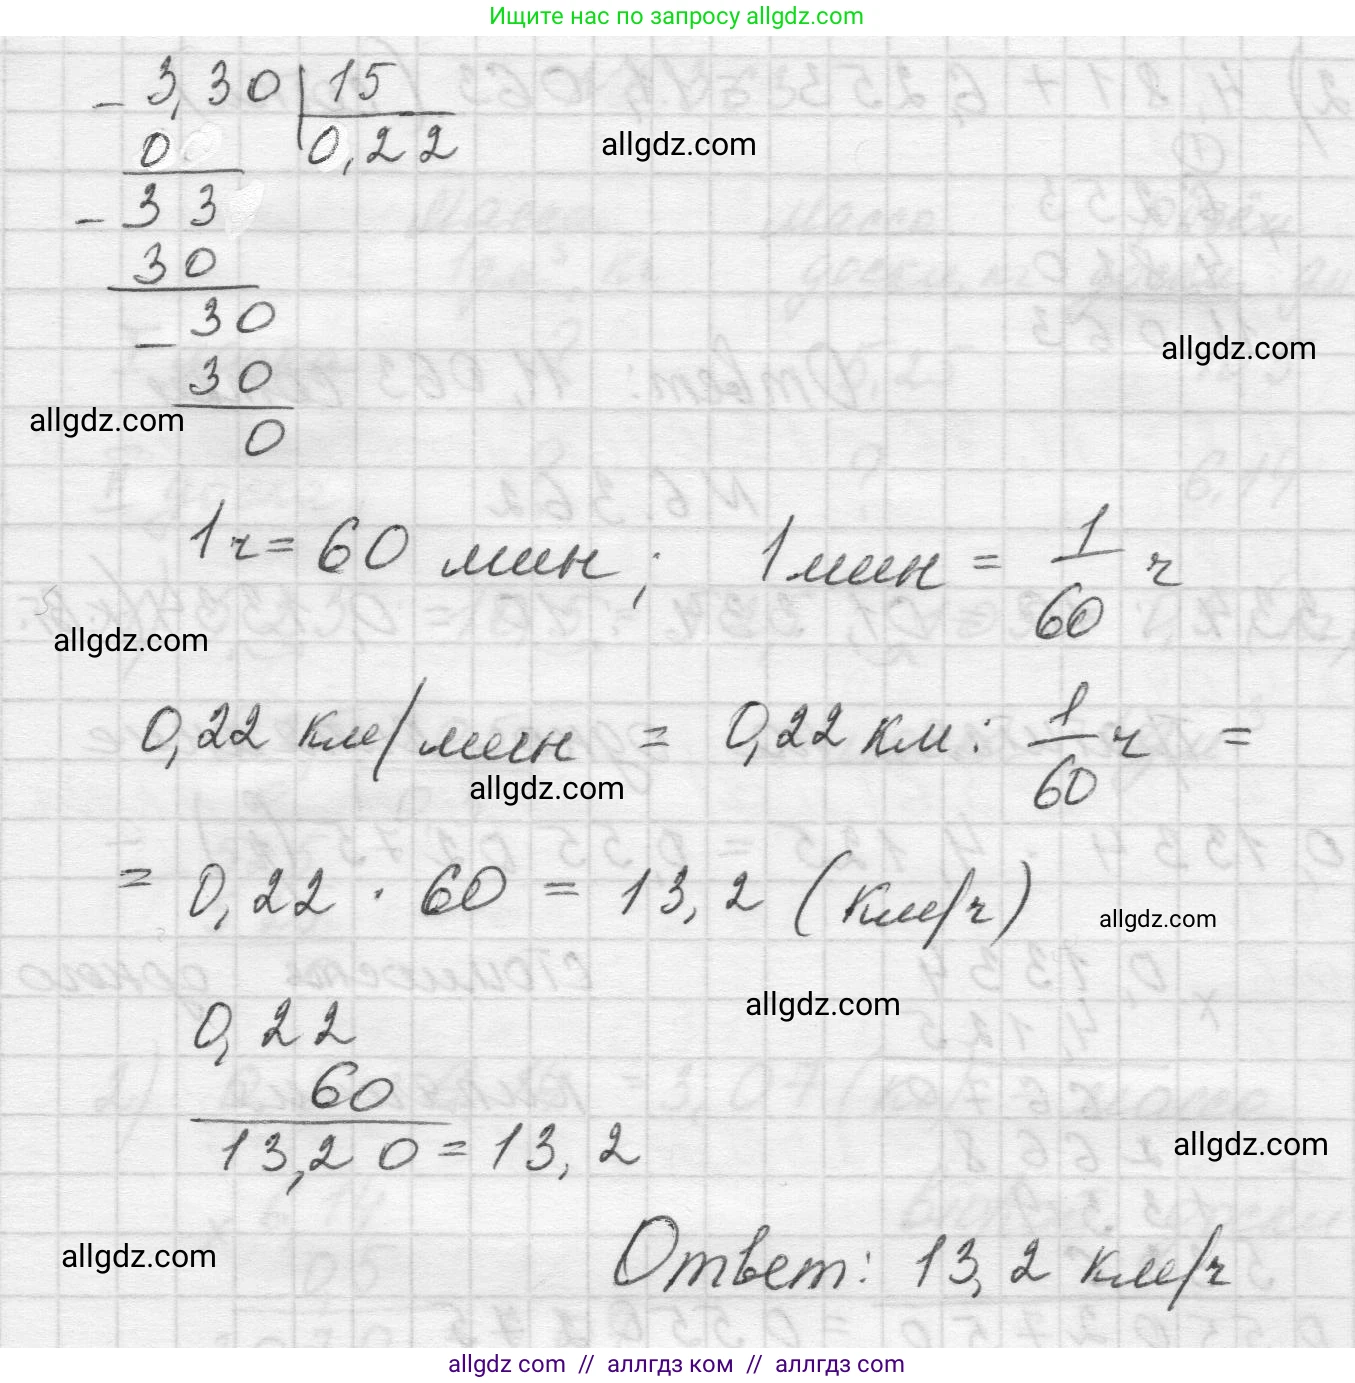 Ищите нас по запросу allgdz.com
- 3,30 | 15
0 0,22
allgdz.com
- 33
30
- 30
allgdz.com
30
allgdz.com
0
1 ч = 60 мин; 1 мин = 1/60 ч
allgdz.com
0,22 км/мин = 0,22 км : 1/60 ч =
allgdz.com
= 0,22 · 60 = 13,2 (км/ч)
allgdz.com
allgdz.com
0,22
60
13,20 = 13,2
allgdz.com
allgdz.com
Ответ: 13,2 км/ч
allgdz com // аллгдз ком // аллгдз com